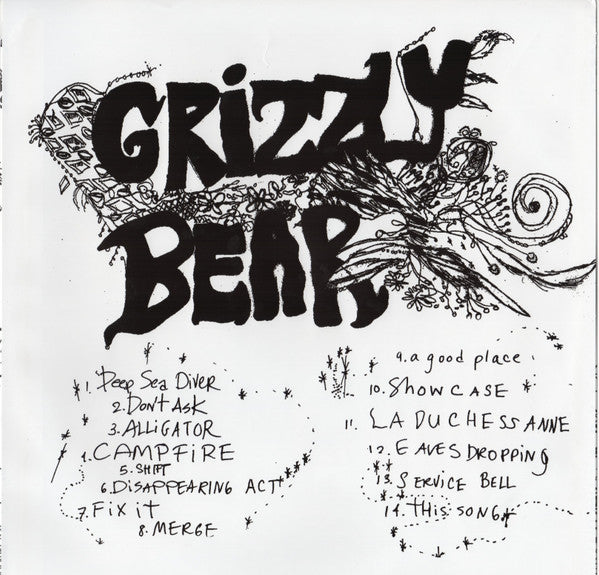 GRiZZLY
BEAR
1. Deep Sea Diver
2. Don't Ask
3. ALLiGATOR
4. CAMPFiRE
5. SHiFT
6. DiSAPPEARiNG ACT
7. Fix it
8. MERGE
9. a good place
10. Show CASE
11. LA DUCHESS ANNE
12. EAVESDROPPiNg
13. SERViCE BELL
14. this SONG